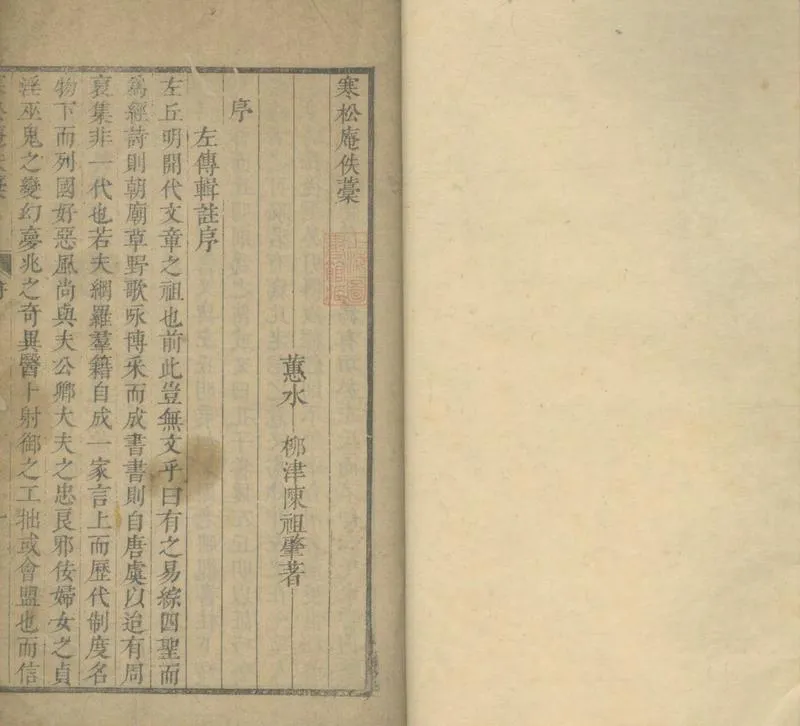 寒松庵佚藁
蕙水 柳津陳祖肇著
序
左傳輯註序
左丘明開代文章之祖也前此豈無文乎曰有之易綜四聖而
爲經詩則朝廟草野歌咏博采而成書書則自唐虞以迨有周
裒集非一代也若夫網羅羣籍自成一家言上而歷代制度名
物下而列國好惡風尚與夫公卿大夫之忠良邪佞婦女之貞
淫巫鬼之變幻夢兆之奇異醫卜射御之工拙或會盟也而信